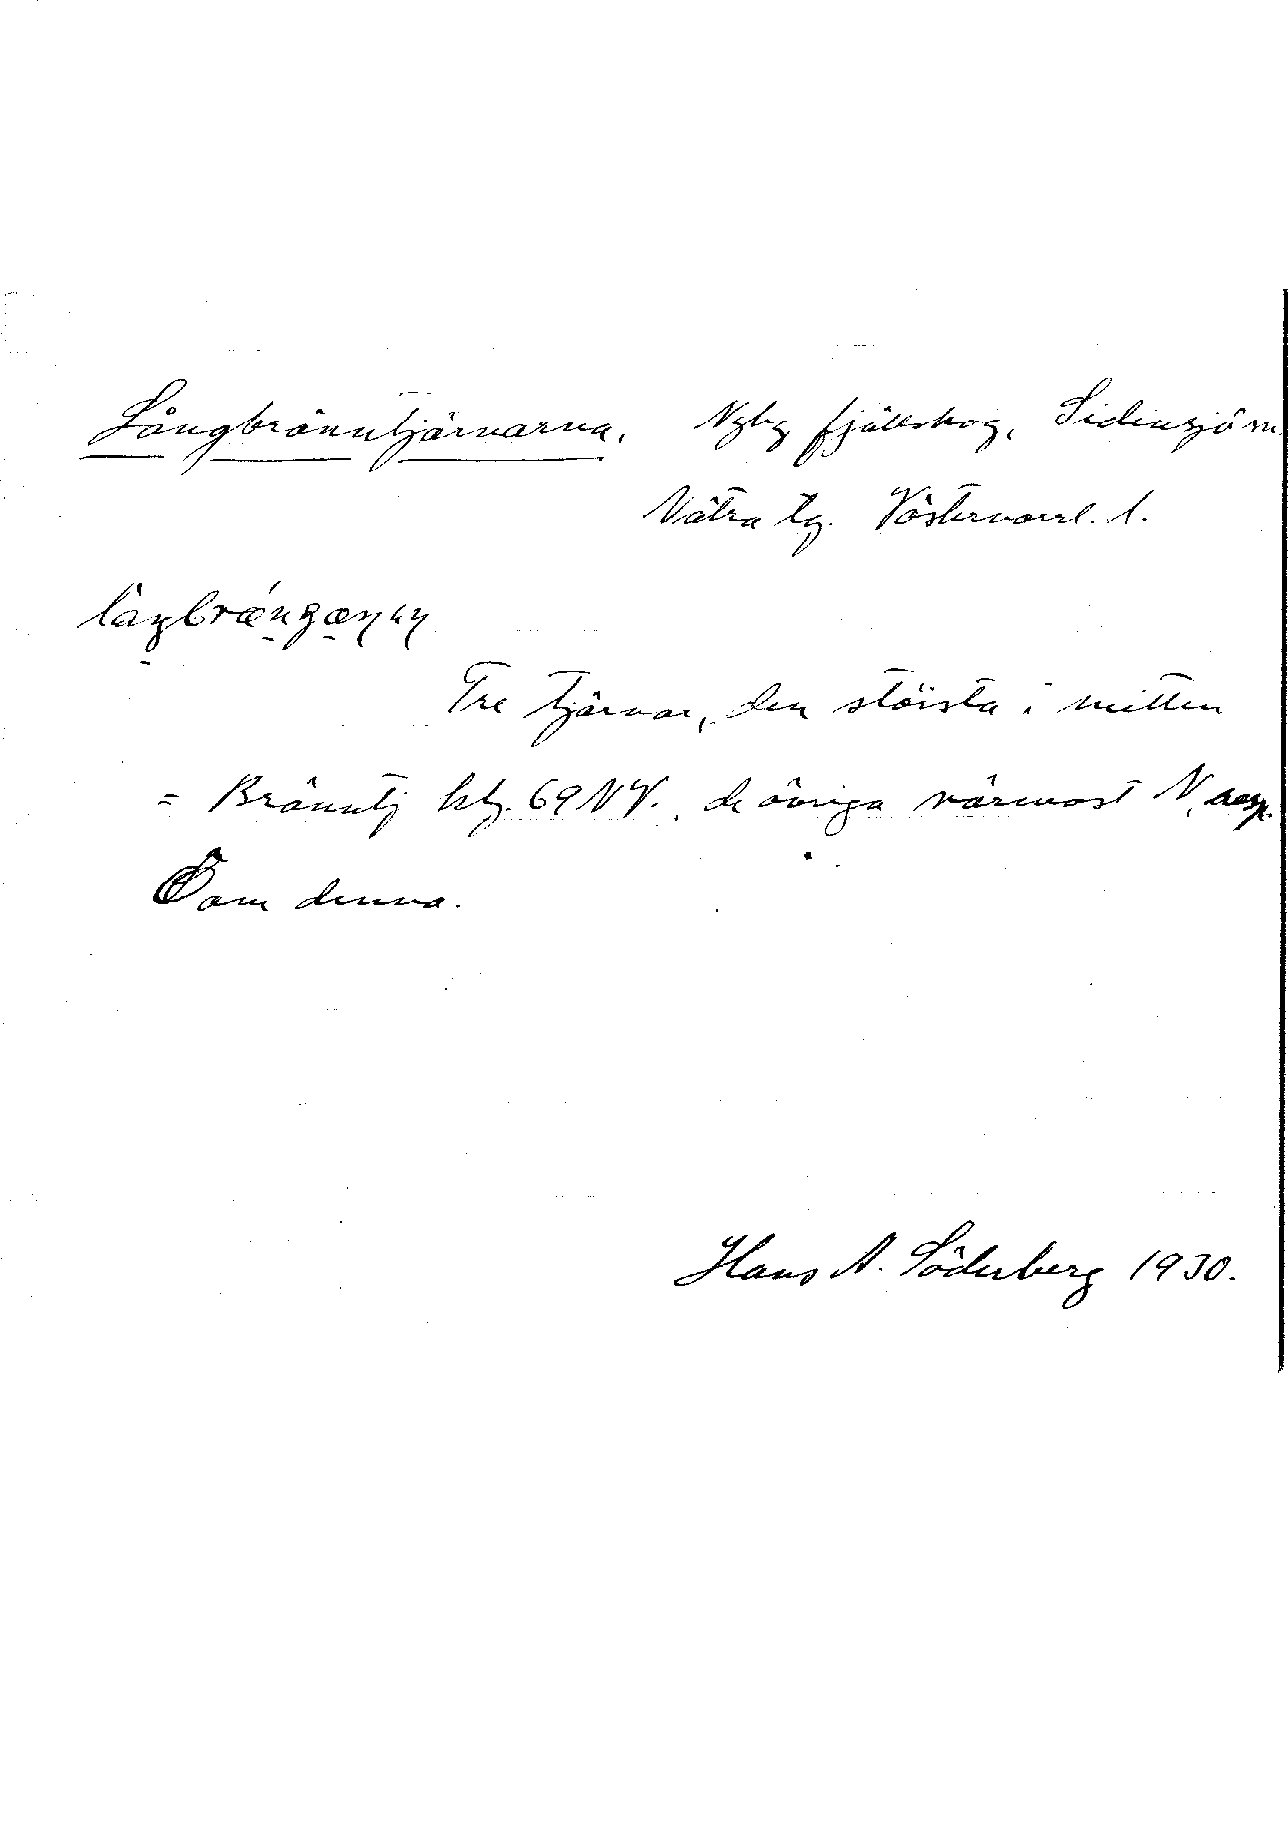 Långbränntjärnarna. Nyby fjällskog, Sidensjö sn
Nätra tg. Västernorrl. l.
Tre tjärnar, den största i mitten
= Bränntj kbl. 69 NV. de övriga närmast N, resp.
Ö om denna.
Hans A. Söderberg 1930.